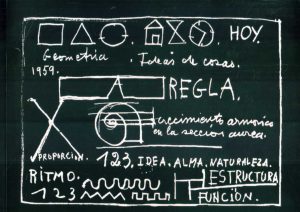 HOY.
Geometria Ideas de cosas.
1959.
REGLA.
crecimiento armonico
en la seccion aurea.
PROPORCION.
123. IDEA. ALMA. NATURALEZA.
RITMO.
ESTRUCTURA
123
FUNCION.